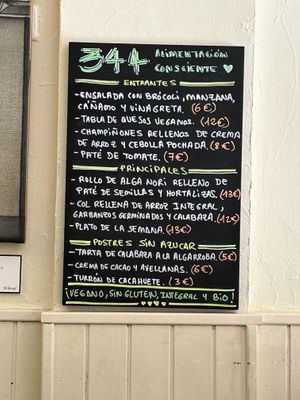 344 ALIMENTACIÓN
CONSCIENTE
ENTRANTES
- ENSALADA CON BRÓCOLI, MANZANA,
CAÑAMO Y VINAGRETA. (6€)
- TABLA DE QUESOS VEGANOS. (12€)
- CHAMPIÑONES RELLENOS DE CREMA
DE ARROZ Y CEBOLLA POCHADA. (8€)
- PATÉ DE TOMATE. (7€)
PRINCIPALES
- ROLLO DE ALGA NORI RELLENO DE
PATÉ DE SEMILLAS Y HORTALIZAS. (13€)
- COL RELLENA DE ARROZ INTEGRAL,
GARBANZOS GERMINADOS Y CALABAZA. (12€)
- PLATO DE LA SEMANA. (13€)
POSTRES SIN AZUCAR
- TARTA DE CALABAZA A LA ALGARROBA. (5€)
- CREMA DE CACAO Y AVELLANAS. (6€)
- TURRÓN DE CACAHUETE. (3€)
¡VEGANO, SIN GLUTEN, INTEGRAL Y BIO!